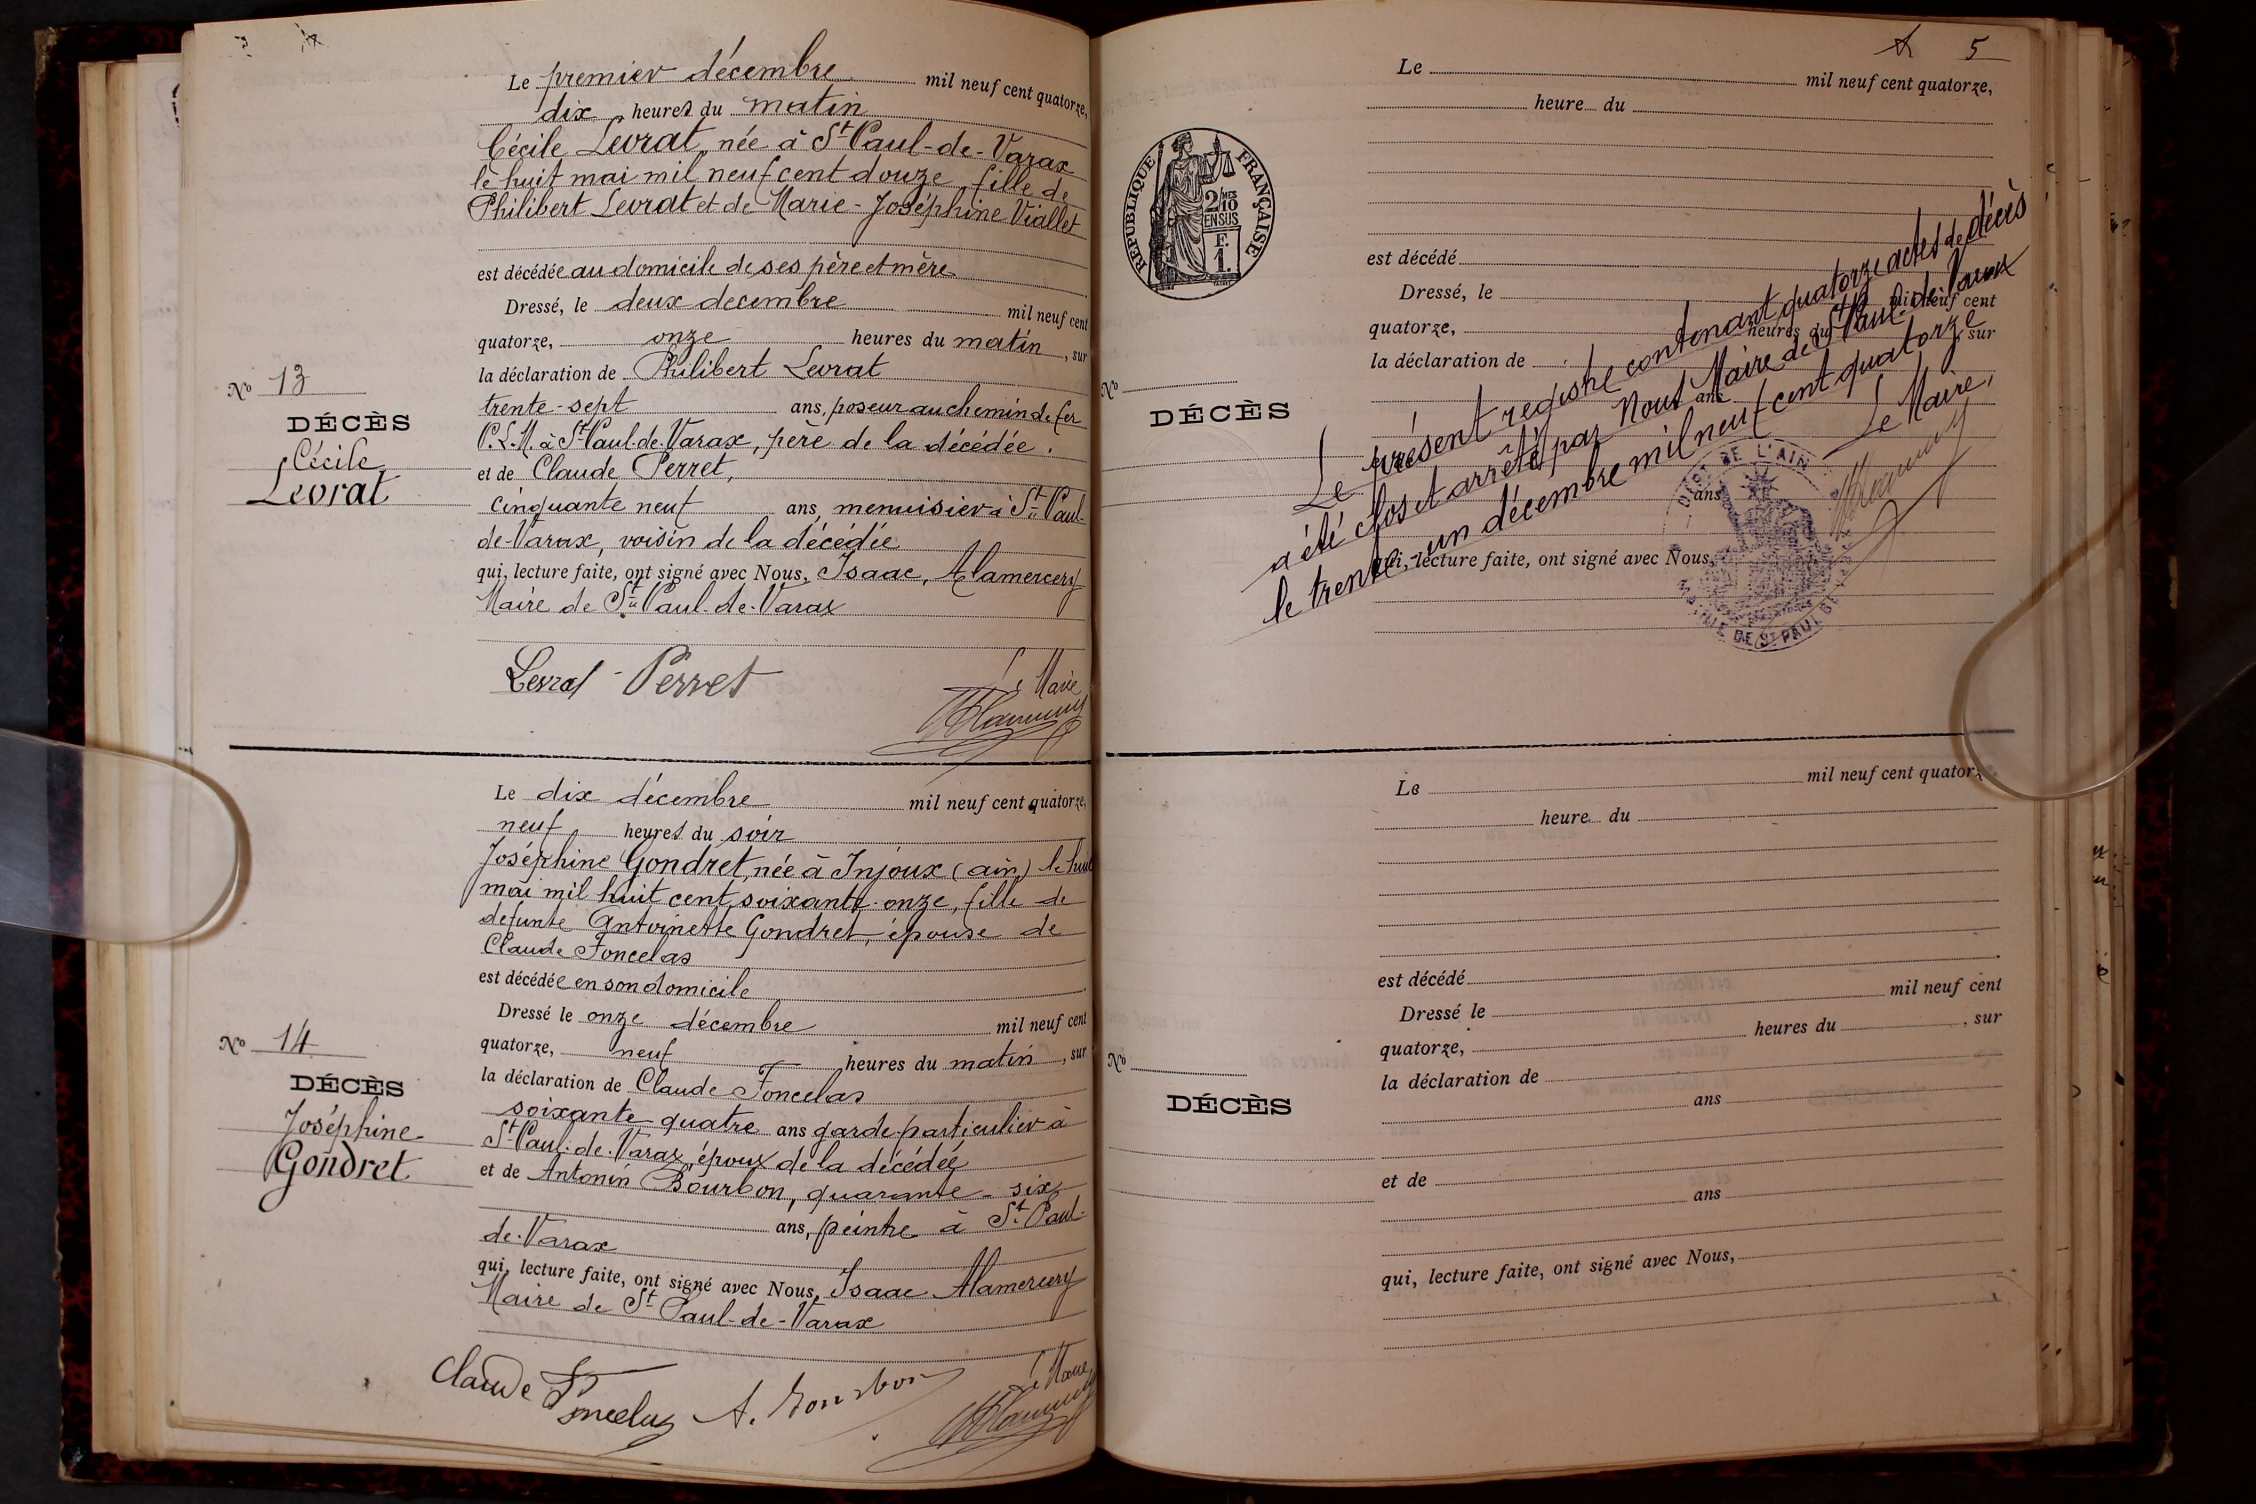 Le premier décembre mil neuf cent quatorze,
dix heures du matin
Cécile Levrat, née à St Paul-de-Varax
le huit mai mil neuf cent douze, fille de
Philibert Levrat et de Marie-Joséphine Viallet
est décédée au domicile de ses père et mère
Dressé, le deux decembre mil neuf cent
quatorze, onze heures du matin, sur
la déclaration de Philibert Levrat
trente-sept ans, poseur au chemin de fer
P.L.M. à St Paul-de-Varax, père de la décédée.
et de Claude Perret,
cinquante neuf ans, menuisier à St Paul-
de-Varax, voisin de la décédée
qui, lecture faite, ont signé avec Nous, Isaac, Alamercery
Maire de St Paul-de-Varax
No 13
DÉCÈS
Cécile
Levrat
Levrat Perret
Le Maire
Le dix décembre mil neuf cent quatorze,
neuf heures du soir
Joséphine Gondret, née à Injoux (ain) le huit
mai mil huit cent soixante-onze, fille de
defunte Antoinette Gondret, épouse de
Claude Foncelas
est décédée en son domicile
Dressé le onze décembre mil neuf cent
quatorze, neuf heures du matin, sur
la déclaration de Claude Foncelas
soixante quatre ans garde-particulier à
St Paul-de-Varax, époux de la décédée
et de Antonin Bourbon, quarante-six
ans, peintre à St Paul-
de-Varax
qui, lecture faite, ont signé avec Nous, Isaac Alamercery
Maire de St Paul-de-Varax
No 14
DÉCÈS
Joséphine
Gondret
Claude Foncelas A. Bourbon
Le Maire
5
Le mil neuf cent quatorze,
heure du
RÉPUBLIQUE FRANÇAISE
2/10
EN SUS
F.
1.
est décédé
Dressé, le mil neuf cent
quatorze, heures du sur
la déclaration de
ans
ans
qui, lecture faite, ont signé avec Nous,
No
DÉCÈS
Le présent registre contenant quatorze actes de décès
a été clos et arrêté par Nous Maire de St Paul-de-Varax
le trente-un décembre mil neuf cent quatorze
Le Maire,
DEPT DE L'AIN
MAIRIE DE ST PAUL DE
Le mil neuf cent quatorze
heure du
est décédé
Dressé le mil neuf cent
quatorze, heures du , sur
la déclaration de
ans
et de
ans
qui, lecture faite, ont signé avec Nous,
No
DÉCÈS